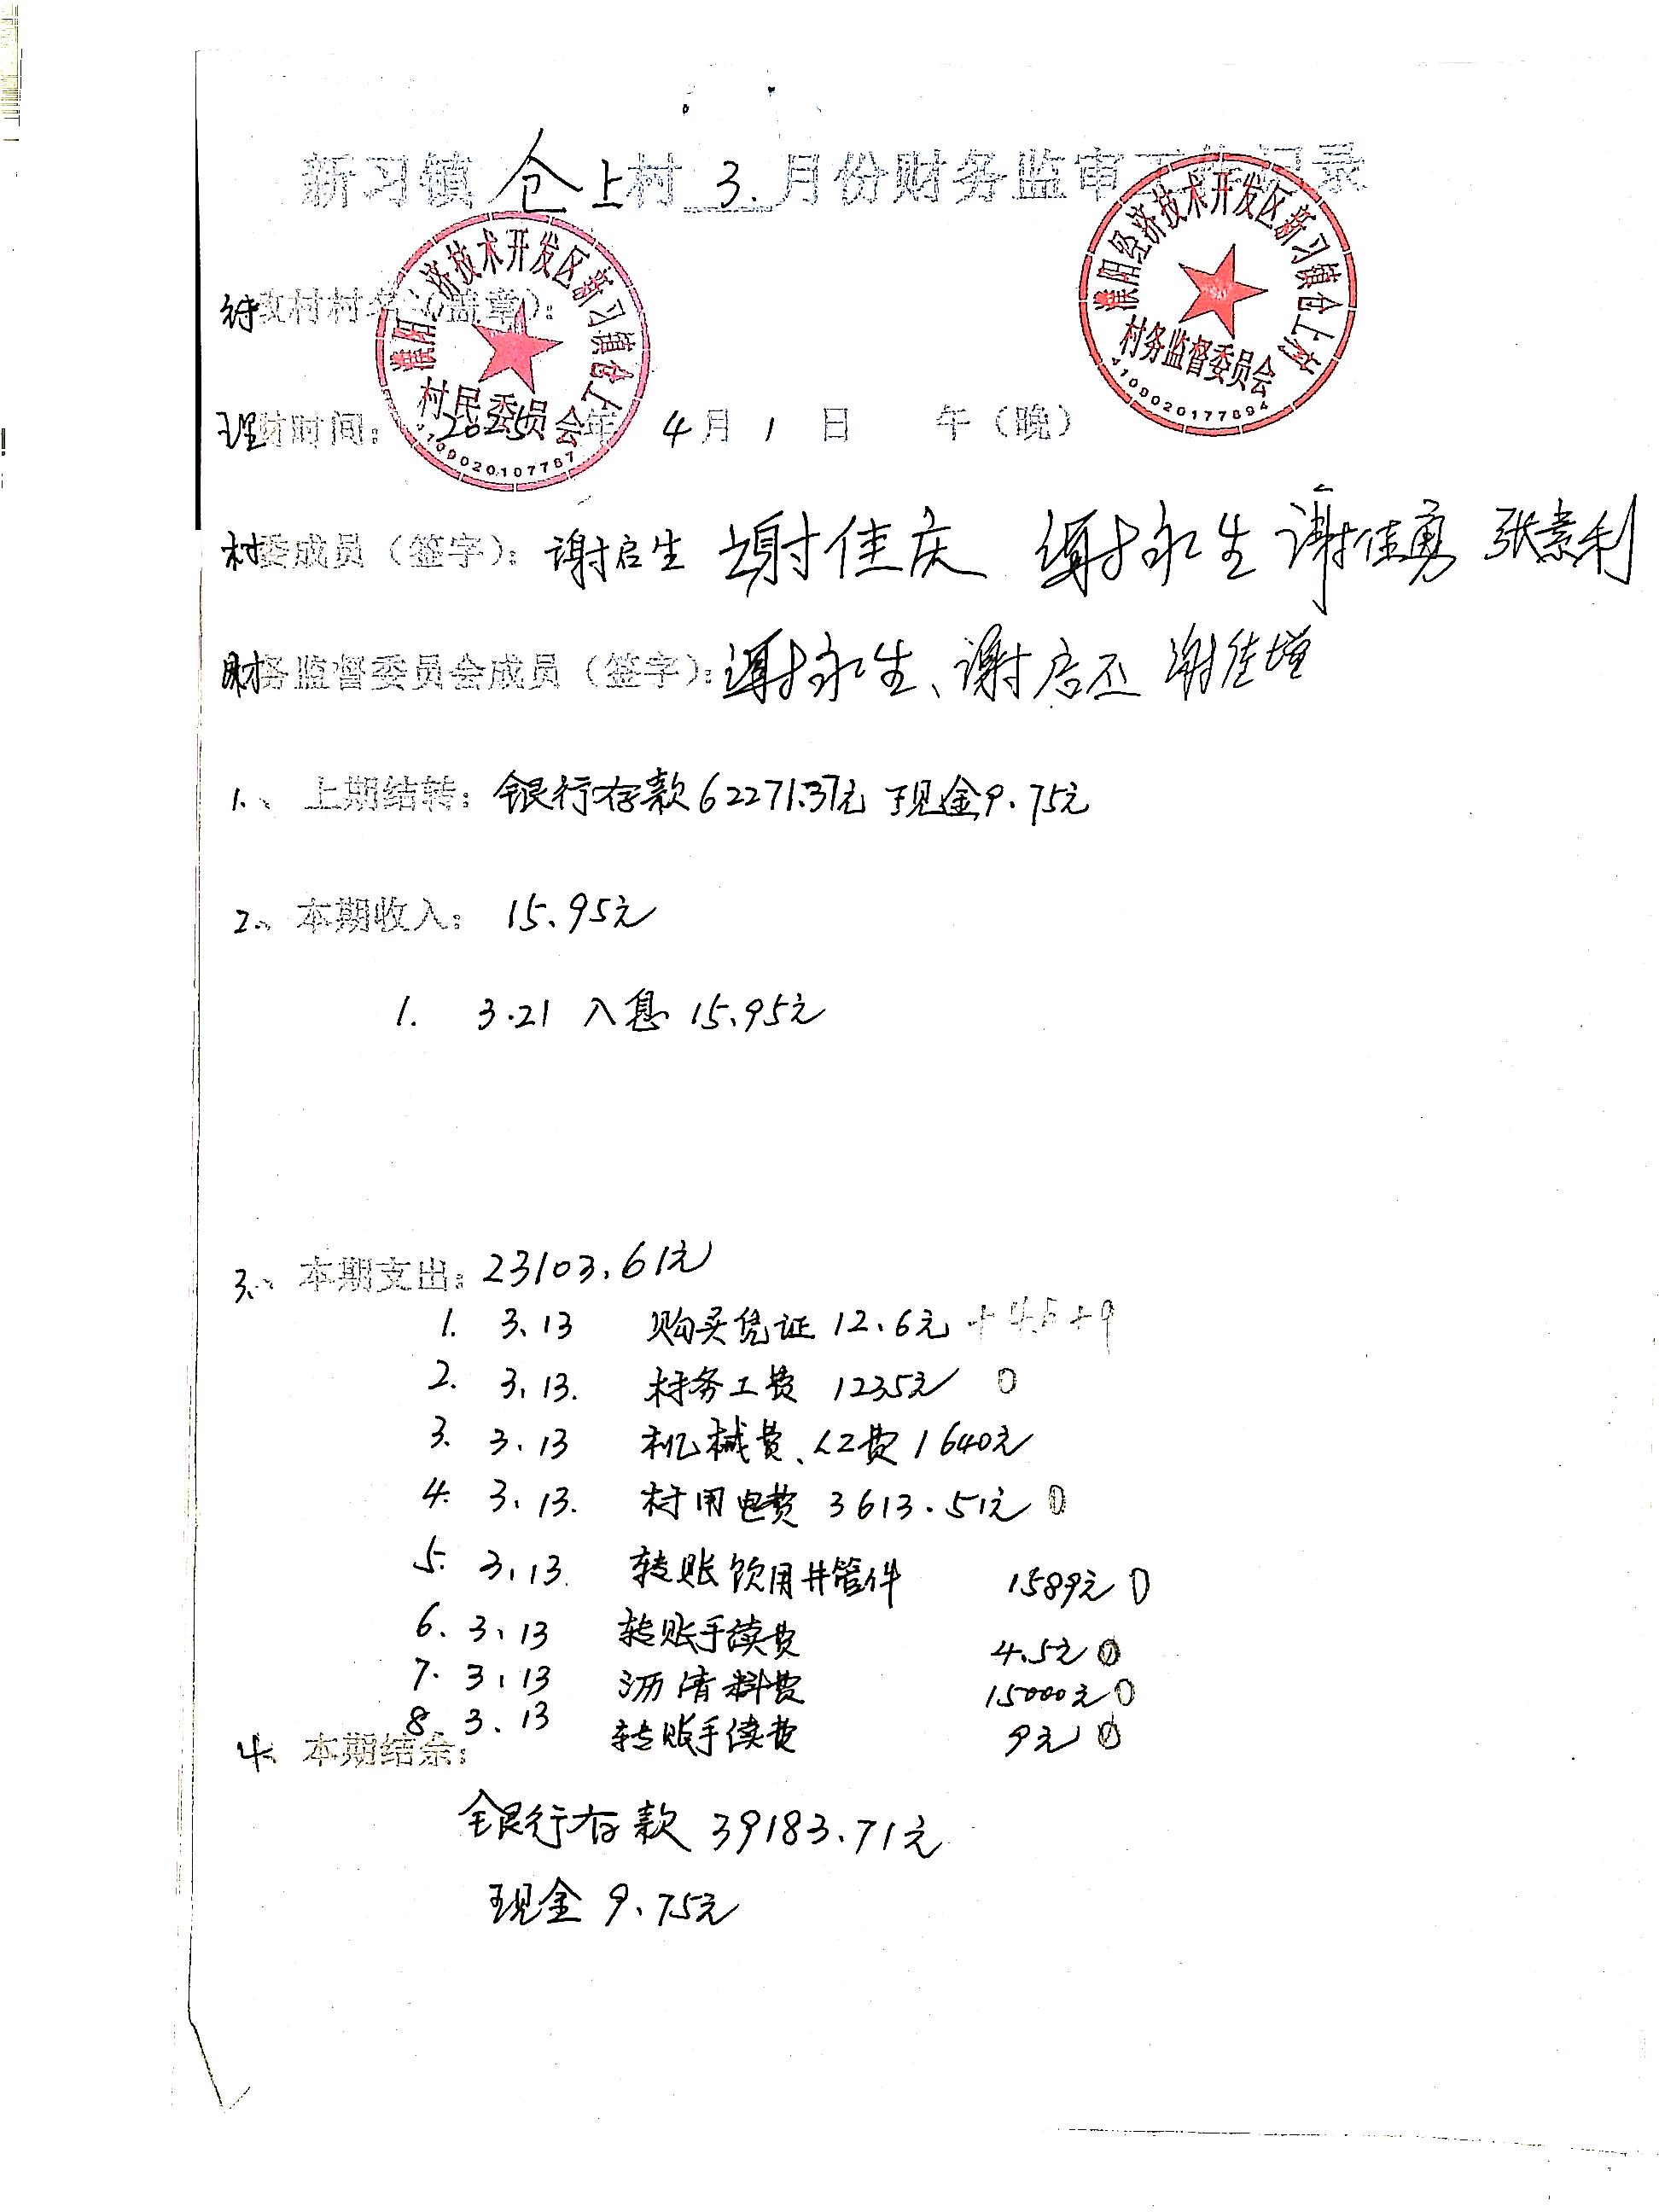 新习镇仓上村 3.月份财务监审工作记录
濮阳经济技术开发区新习镇仓上村
村务监督委员会
4109020177894
濮阳经济技术开发区新习镇仓上
村民委员会
4109020107767
待政村村名(盖章):
理财时间: 2025年 4月 1 日 午(晚)
村委成员(签字): 谢启生 谢佳庆 谢永生 谢佳勇 张素利
财务监督委员会成员(签字): 谢永生、谢启丕 谢佳增
1、上期结转: 银行存款62271.37元 现金9.75元
2、本期收入: 15.95元
1. 3.21 入息 15.95元
3、本期支出: 23103.61元
1. 3.13 购买凭证 12.6元 +4.5+9
2. 3.13. 村务工费 1235元 0
3. 3.13 机械费、人工费 1640元
4. 3.13. 村用电费 3613.51元 0
5. 3.13. 转账饮用井管件 1589元 0
6. 3.13 转账手续费 4.5元 0
7. 3.13 沥清料费 15000元 0
8. 3.13 转账手续费 9元 0
4、本期结余:
银行存款 39183.71元
现金 9.75元